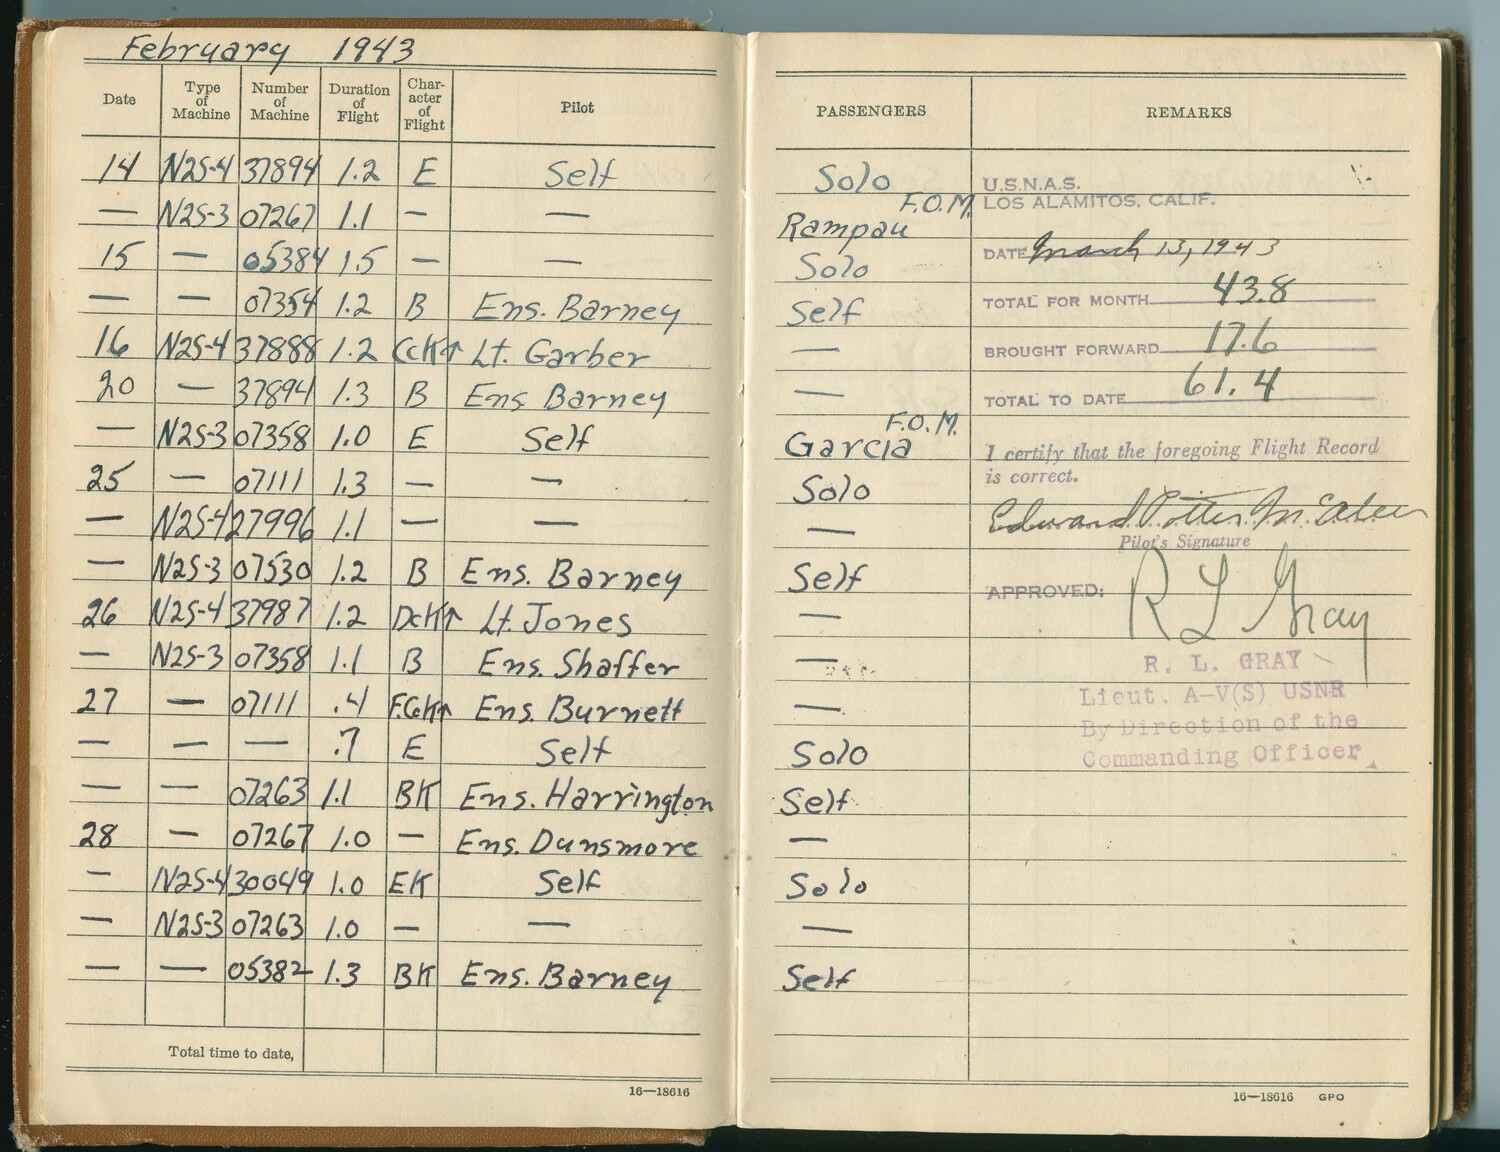 February 1943
Date Type of Machine Number of Machine Duration of Flight Char-acter of Flight Pilot PASSENGERS REMARKS
14 N2S-4 37894 1.2 E Self Solo
— N2S-3 07267 1.1 — — Rampau F.O.M.
15 — 05384 1.5 — — Solo
— — 07354 1.2 B Ens. Barney Self
16 N2S-4 37888 1.2 CcK↑ Lt. Garber —
20 — 37894 1.3 B Ens. Barney —
— N2S-3 07358 1.0 E Self Garcia F.O.M.
25 — 07111 1.3 — — Solo
— N2S-4 27996 1.1 — — —
— N2S-3 07530 1.2 B Ens. Barney Self
26 N2S-4 37987 1.2 DcK↑ Lt. Jones —
— N2S-3 07358 1.1 B Ens. Shaffer —
27 — 07111 .4 F.CcK↑ Ens. Burnett —
— — — .7 E Self Solo
— — 07263 1.1 BK Ens. Harrington Self
28 — 07267 1.0 — Ens. Dunsmore —
— N2S-4 30049 1.0 EK Self Solo
— N2S-3 07263 1.0 — — —
— — 05382 1.3 BK Ens. Barney Self
Total time to date,
16—18616
U.S.N.A.S.
LOS ALAMITOS, CALIF.
DATE March 13, 1943
TOTAL FOR MONTH 43.8
BROUGHT FORWARD 17.6
TOTAL TO DATE 61.4
I certify that the foregoing Flight Record
is correct.
Edward Potter McAteer
Pilot's Signature
APPROVED: R L Gray
R. L. GRAY
Lieut. A-V(S) USNR
By Direction of the
Commanding Officer.
16—18616 GPO